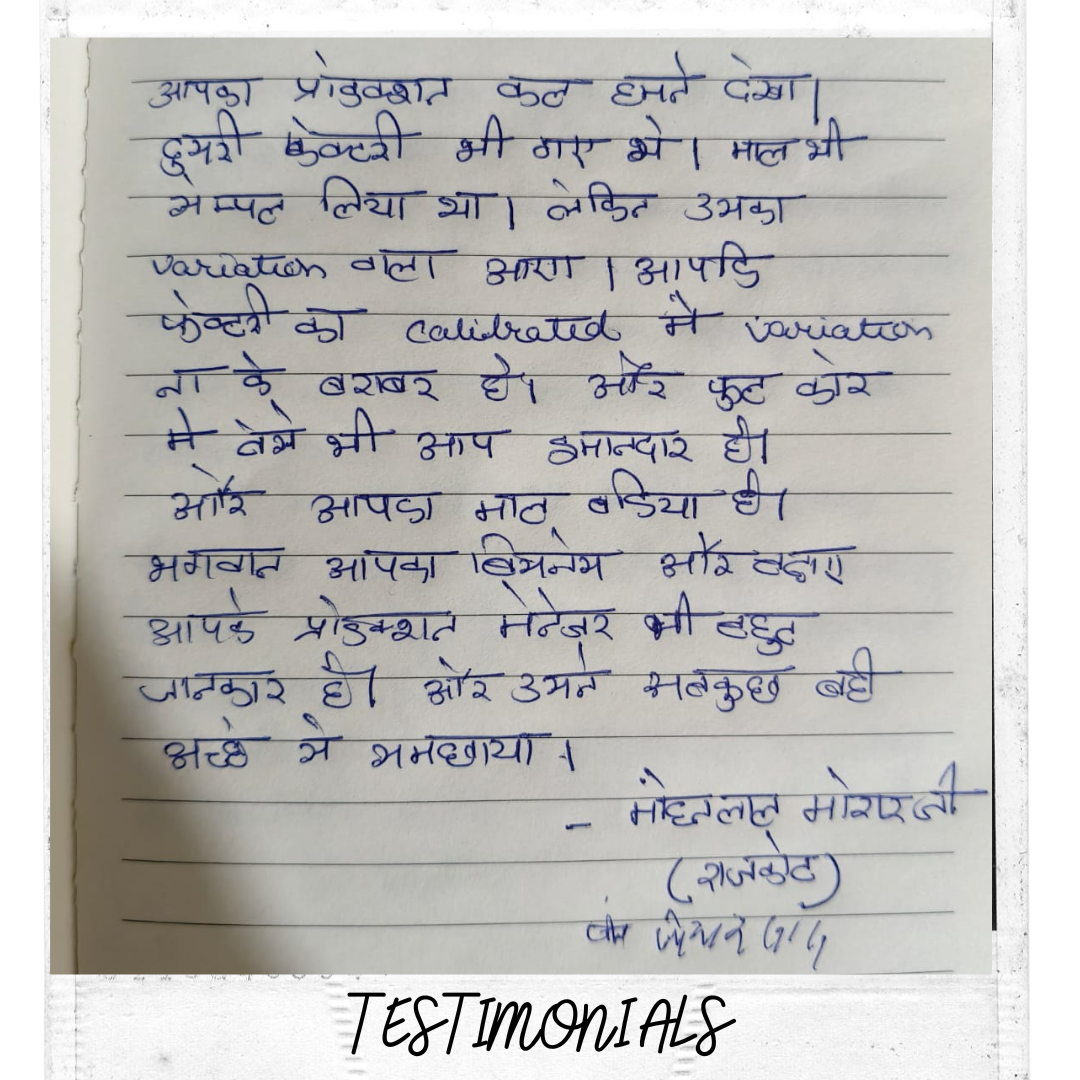 आपका प्रोडक्शन कल हमने देखा।
दुसरी फेक्टरी भी गए थे। माल भी
सेम्पल लिया था। लेकिन उसका
variation वाला आया। आपकि
फेक्टरी का calibrated मैं variation
ना के बराबर है। और फुट कोर
मे वेसे भी आप इमानदार है।
और आपका माल बडिया है।
भगवान आपका बिसनेस और बढाए
आपके प्रोडक्शन मेनेजर भी बहुत
जानकार है। और उसने सबकुछ बही
अच्छे से समछाया।
- मोहनलाल मोरारजी
(राजकोट)
TESTIMONIALS